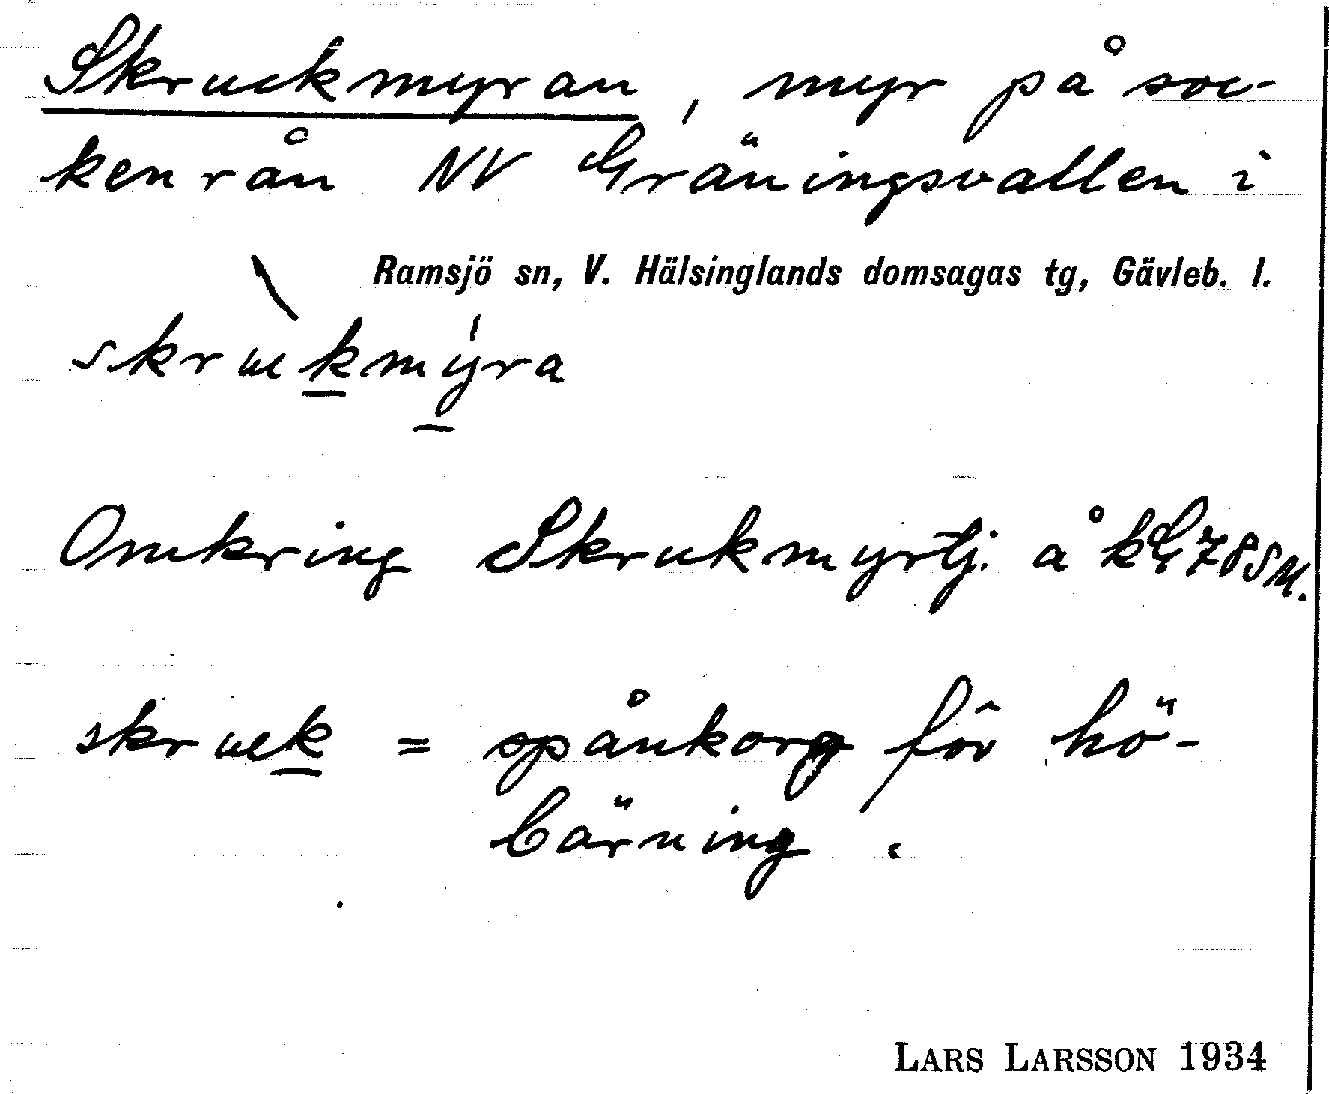 Skruckmyran, myr på soc-
kenrån NV Gräningsvallen i
Ramsjö sn, V. Hälsinglands domsagas tg, Gävleb. l.
skrukmýra
Omkring Skrukmyrtj. å kG 78 SM.
skruk = spånkorg för hö-
bärning.
LARS LARSSON 1934